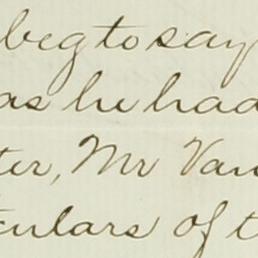 beg to say
as he had
ter, Mr Van
culars of t